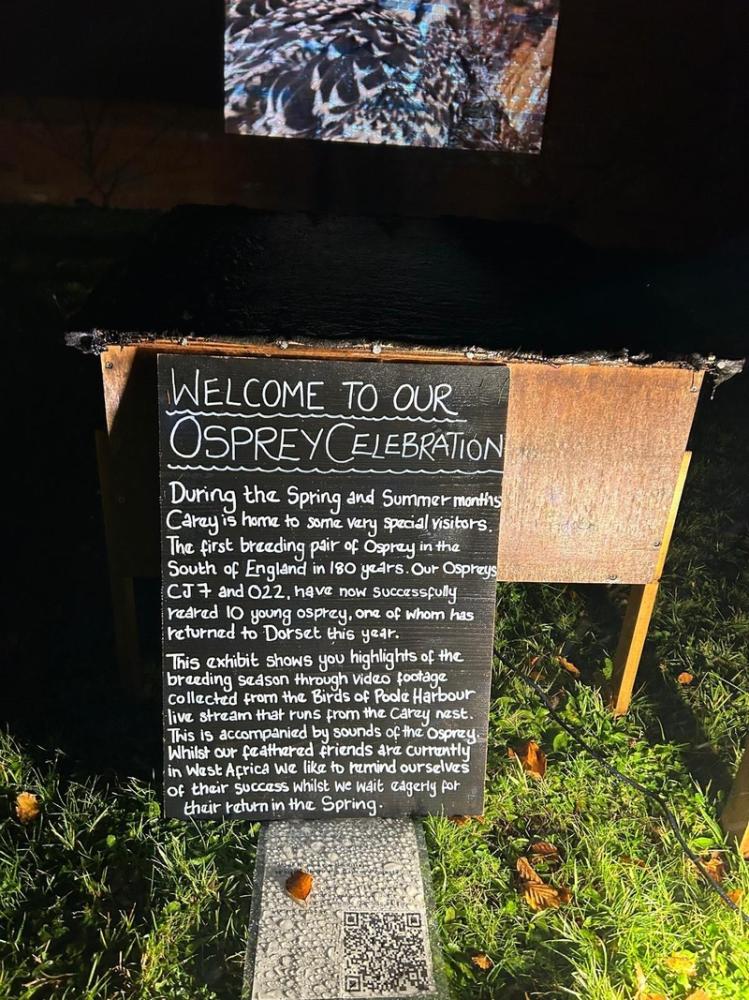 WELCOME TO OUR
OSPREY CELEBRATION
During the Spring and Summer months
Carey is home to some very special visitors.
The first breeding pair of Osprey in the
South of England in 180 years. Our Ospreys
CJ7 and 022, have now successfully
reared 10 young osprey, one of whom has
returned to Dorset this year.
This exhibit shows you highlights of the
breeding season through video footage
collected from the Birds of Poole Harbour
live stream that runs from the Carey nest.
This is accompanied by sounds of the Osprey.
Whilst our feathered friends are currently
in West Africa we like to remind ourselves
of their success whilst we wait eagerly for
their return in the Spring.